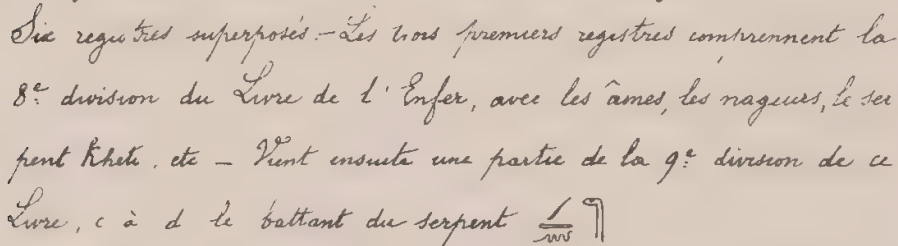 Six registres superposés. - Les trois premiers registres comprennent la
8e division du Livre de l'Enfer, avec les âmes, les nageurs, le ser
pent Kheti, etc - Vient ensuite une partie de la 9e division de ce
Livre, c à d le battant du serpent